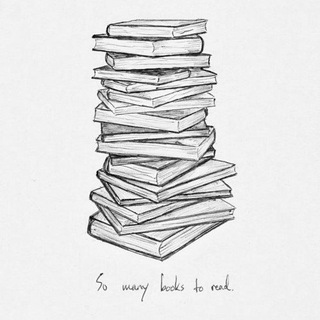 So many books to read.